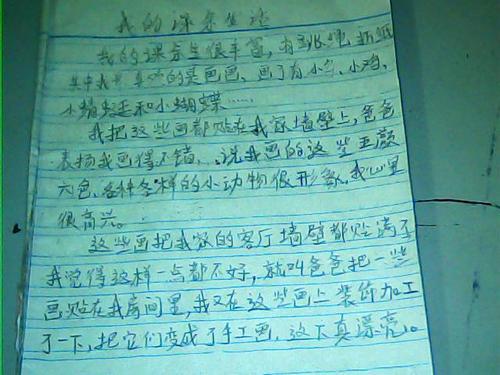 我的课余生活
我的课余生活很丰富，有跳绳、折纸
其中我最喜欢的是画画，画了有小鸟、小鸡、
小蜻蜓和小蝴蝶……
我把这些画都贴在我家墙壁上，爸爸
表扬我画得不错，说我画的这些五颜
六色、各种各样的小动物很形象，我心里
很高兴。
这些画把我家的客厅墙壁都贴满了
我觉得这样一点都不好，就叫爸爸把一些
画贴在我房间里，我又在这些画上装饰加工
了一下，把它们变成了手工画，这下真漂亮。